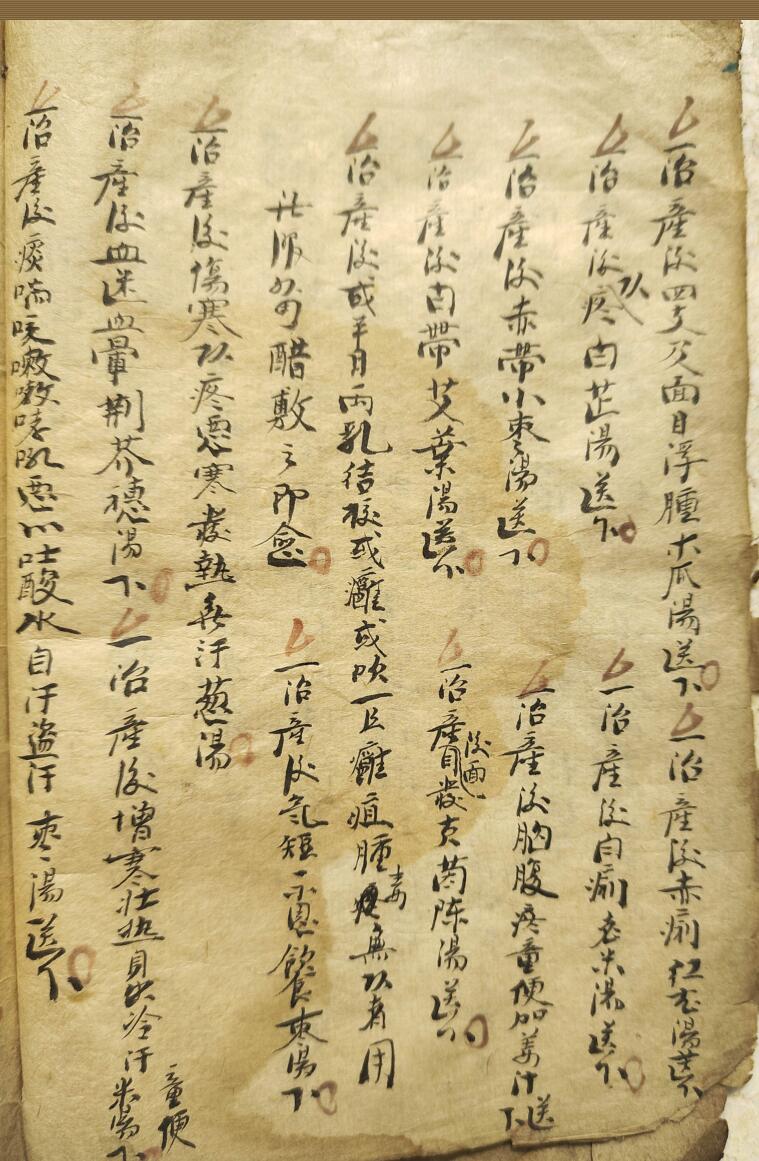 一治產後四支及面目浮腫木瓜湯送下 一治產後赤痢紅花湯送下
一治產後疼白芷湯送下 一治產後白痢老米湯送下
一治產後赤帶小棗湯送下 一治產後胸腹疼童便加姜汁送下
一治產後白帶艾葉湯送下 一治產後面目發黃茵陳湯送下
一治產後或半月兩乳結核或癰或吹一旦癰疽腫毒無以者用
此服外可醋敷之即愈 一治產後氣短不思飲食棗湯下
一治產後傷寒頭疼惡寒發熱無汗葱湯
一治產後血迷血暈荆芥穗湯下 一治產後增寒壯熱自出冷汗米湯下
童便
一治產後痰喘咳嗽哮吼惡心吐酸水自汗盜汗棗湯送下